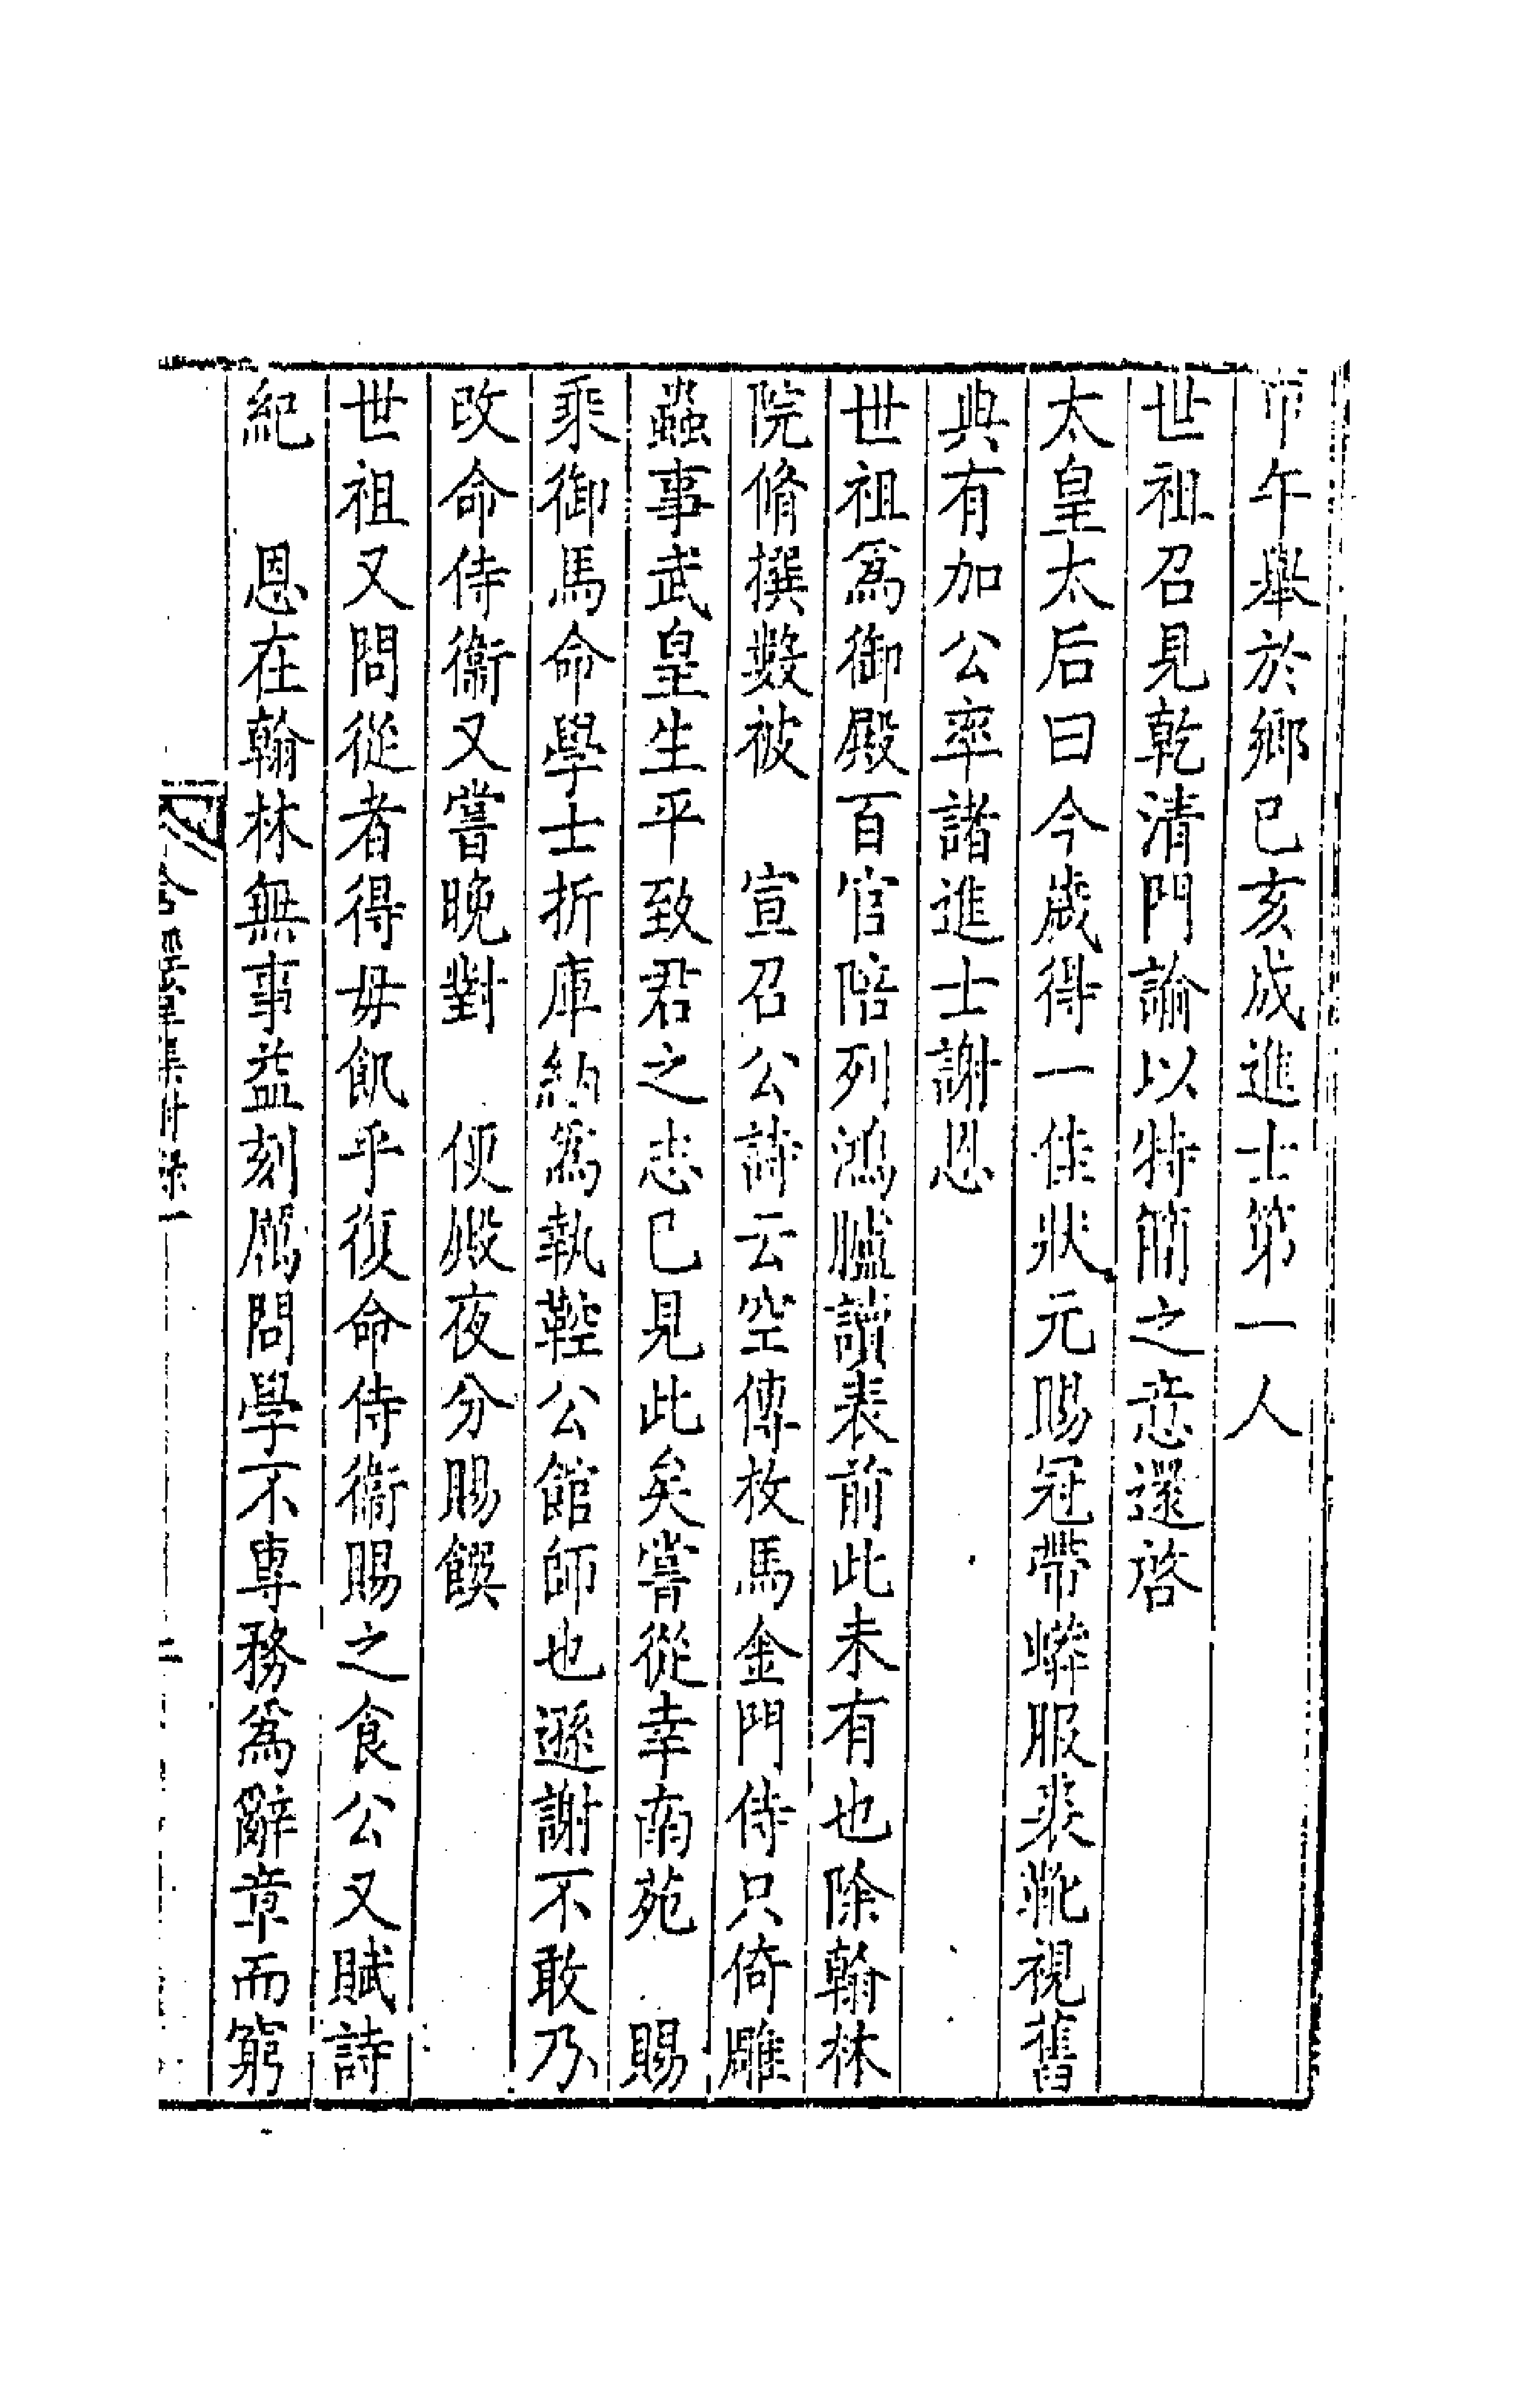 甲午舉於鄉己亥成進士第一人
世祖召見乾清門諭以特簡之意還啓
太皇太后曰今歲得一佳狀元賜冠帶蟒服裘靴視舊
典有加公率諸進士謝恩
世祖爲御殿百官陪列鴻臚讀表前此未有也除翰林
院脩撰數被　宣召公詩云空傳枚馬金門侍只倚雕
蟲事武皇生平致君之志已見此矣嘗從幸南苑　賜
乘御馬命學士折庫納爲執鞚公館師也遜謝不敢乃
改命侍衞又嘗晚對　便殿夜分賜饌
世祖又問從者得毋飢乎復命侍衞賜之食公又賦詩
紀　恩在翰林無事益刻厲問學不專務爲辭章而窮
含經堂集附錄一　二